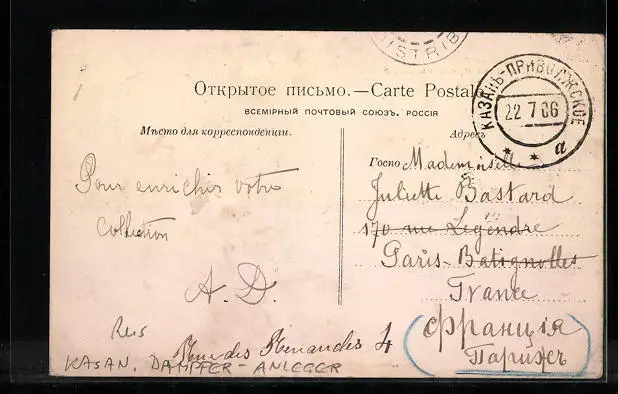 DISTRIB
Открытое письмо.—Carte Postale
ВСЕМІРНЫЙ ПОЧТОВЫЙ СОЮЗЪ. РОССІЯ
Мѣсто для корреспонденціи.
Адресъ
КАЗАНЬ-ПРИВОЛЖСКОЕ
22 7 06
а
Pour enrichir votre
collection
A.D.
Госпо Mademoiselle
Juliette Bastard
170 rue Legendre
Paris-Batignolles
France
Франція
Парижъ
Rue des Renaudes 4
KASAN, DAMPFER-ANLEGER